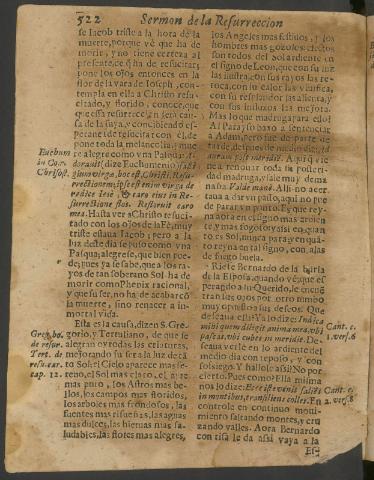 522 Sermon de la Resurreccion
se Iacob triste a la hora de la
muerte, porque vè que ha de
morir, y no tiene certeza al
presente, cō q̄ ha de resucitar;
pone los ojos entonces en la
flor de la vara de Joseph, con-
templa en ella a Christo resu-
citado, y florido, conoce, que
que essa resurrecciō serà cau-
sa de la suya, y concibiendo es-
perança de resucitar con el, de
pone toda la melancolia, y mue
re alegre como vna Pasqua:
dize Euchumeno:
gium virga, hoc est, Christi, Resur-
rectionem, ipse est enim virga de
radice Iesè & caro eius in Re-
surrectione flos. Restoruit caro
mea. Hasta ver a Christo resuci
tado con los ojos de la Fè, muy
triste estaua Iacob; pero a la
luz deste dia se puso como vna
Pasqua, alegrese, que bien pue
de; pues ya se sabe, que a los ra-
yos de tan soberano Sol ha de
morir como Phenix racional,
y que su ser, no ha de acabar cō
la muerte, sino renacer a in-
mortal vida.
Esta es la causa, dizen S. Gre-
gorio, y Tertuliano, de que se
alegran oy todas las criaturas,
mejorando su sèr a la luz de tā
to Sol: el Cielo aparece mas se-
reno, el Sol mas claro, el ayre
mas puro, los Astros mas be-
llos, los campos mas floridos,
los arboles mas frondosos, las
fuentes mas risueñas, las aguas
mas dulces, las hieruas mas sa-
ludables, las flores mas alegres,
Euchum
in Com.
Chrysost.
Greg. ho.
de resur.
Tert. de
resu. car.
cap. 12.
los Angeles mas festiuos, y los
hombres mas gozosos: efectos
son todos del Sol ardiente en
el signo de Leon, que con su luz
las ilustra, con sus rayos las re-
toca, con su calor las viuifica,
con su resplandor las alienta, y
con sus influxos las mejora.
Mas lo que madruga para ello!
Al Parayso baxò a sentenciar
a Adam, pero fue de parte de
tarde, despues de medio dia: Ad
auram post meridiē. Aqui q̄ vie
ne a renouar toda su posteri-
dad madruga, y sale muy de ma
ñana: Valde manè. Allì no acer-
taua a dar vn passo, aqui no pue
de parar vn punto. Es que rey-
na aora en el signo mas arolen
te y mas fogoso, y assi en quan-
to es Sol, nunca para, y en quā-
to reyna en tal signo, con alas
de fuego buela.
Riese Bernardo de la burla
de la Esposa, quando vè, que es
perando a su Querido, le encuē
tran los ojos por otro rumbo
muy opuesto a sus deseos. Que
deseaua ella? Ya lo dize: Indica
mihi quem diligit anima mea, vbi
pascas, vbi cubes in meridie. De-
seaua verle en lo ardiente del
medio dia con reposo, y con
sosiego. Y hallòle assi? No por
cierto. Pues como? Ella misma
nos lo dize: Ecce iste venit saliēs
in montibus, transiliens colles. En
controle en continuo moui-
miento saltando montes, y cru
zando valles. Aora Bernardo
con risa le da assi vaya a la
Es-
Cant. c.
1. vers. 6
Cant. c.
2. vers. 8